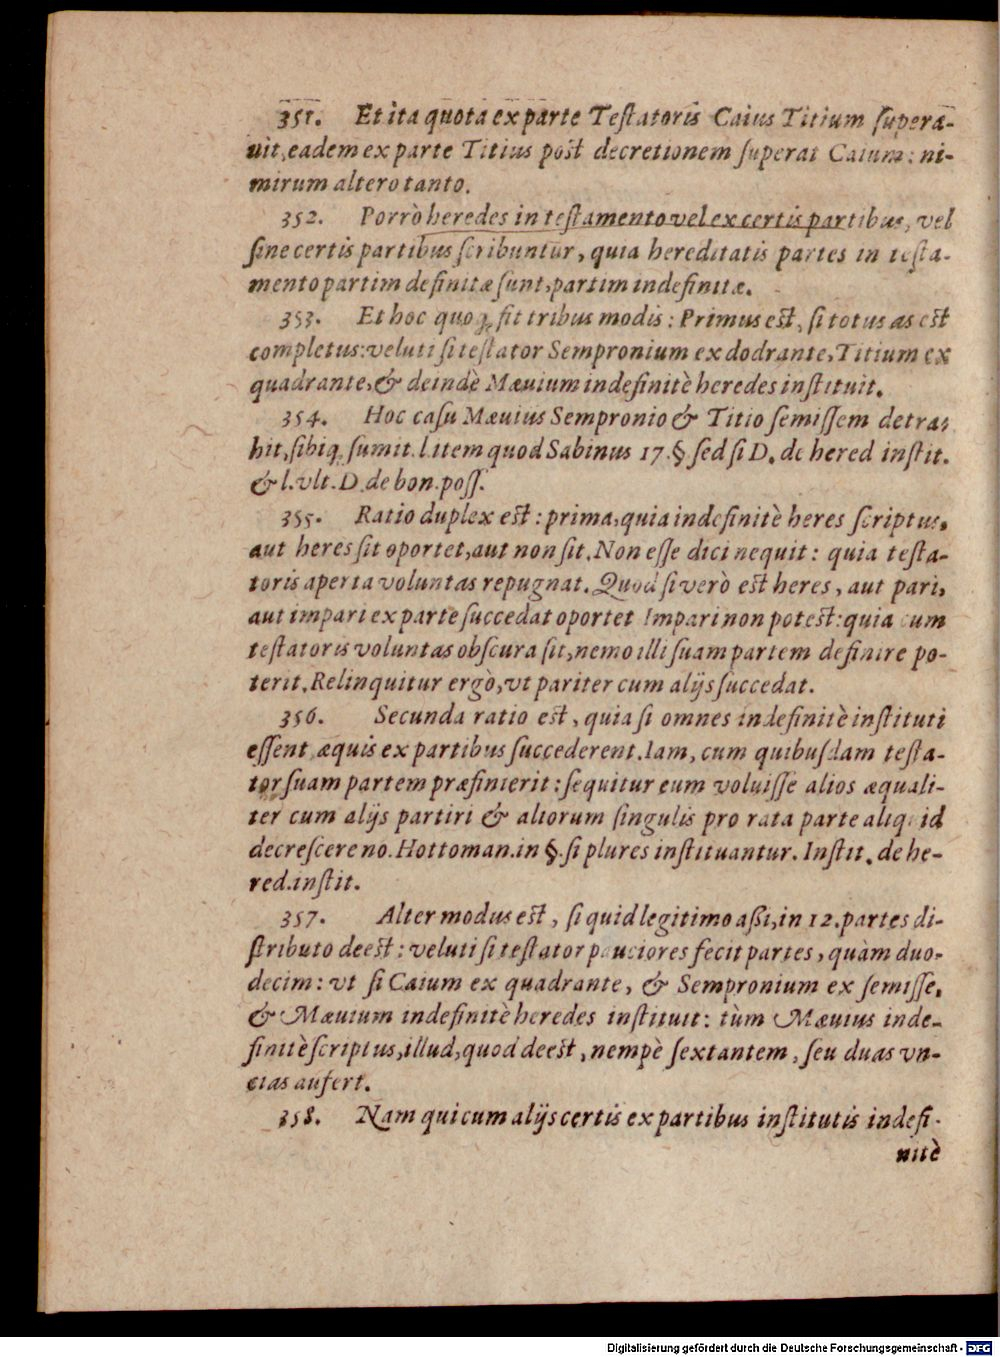 351. Et ita quota ex parte Testatoris Caius Titium ſupera-
uit, eadem ex parte Titius post decretionem ſuperat Caium: ni-
mirum altero tanto.
352. Porrò heredes in teſtamento vel ex certis partibus, vel
ſine certis partibus ſcribuntur, quia hereditatis partes in teſta-
mento partim definitæ ſunt, partim indefinitæ.
353. Et hoc quoq; fit tribus modis: Primus est, ſi totus as est
completus: veluti ſi teſtator Sempronium ex dodrante, Titium ex
quadrante, & deindè Mæuium indefinitè heredes inſtituit.
354. Hoc caſu Mæuius Sempronio & Titio ſemiſſem detra-
hit, ſibiq; ſumit. l. item quod Sabinus 17. § ſed ſi D. de hered inſtit.
& l. vlt. D. de bon. poſſ.
355. Ratio duplex est: prima, quia indefinitè heres ſcriptus,
aut heres ſit oportet, aut non ſit. Non eſſe dici nequit: quia teſta-
toris aperta voluntas repugnat. Quod ſi verò est heres, aut pari,
aut impari ex parte ſuccedat oportet Impari non potest: quia cum
teſtatoris voluntas obſcura ſit, nemo illi ſuam partem definire po-
terit. Relinquitur ergò, vt pariter cum alijs ſuccedat.
356. Secunda ratio est, quia ſi omnes indefinitè inſtituti
eſſent æquis ex partibus ſuccederent. Iam, cum quibuſdam teſta-
tor ſuam partem præfinierit: ſequitur eum voluiſſe alios æquali-
ter cum alijs partiri & aliorum ſingulis pro rata parte aliquid
decreſcere no. Hottoman. in §. ſi plures inſtituantur. Inſtit. de he-
red. inſtit.
357. Alter modus est, ſi quid legitimo aßi, in 12. partes di-
ſtributo deest: veluti ſi teſtator pauciores fecit partes, quàm duo-
decim: vt ſi Caium ex quadrante, & Sempronium ex ſemiſſe,
& Mæuium indefinitè heredes inſtituit: tùm Mæuius inde-
finitè ſcriptus, illud, quod deest, nempè ſextantem, ſeu duas vn-
cias aufert.
358. Nam qui cum alijs certis ex partibus inſtitutis indefi-
nitè
Digitalisierung gefördert durch die Deutsche Forschungsgemeinschaft - DFG